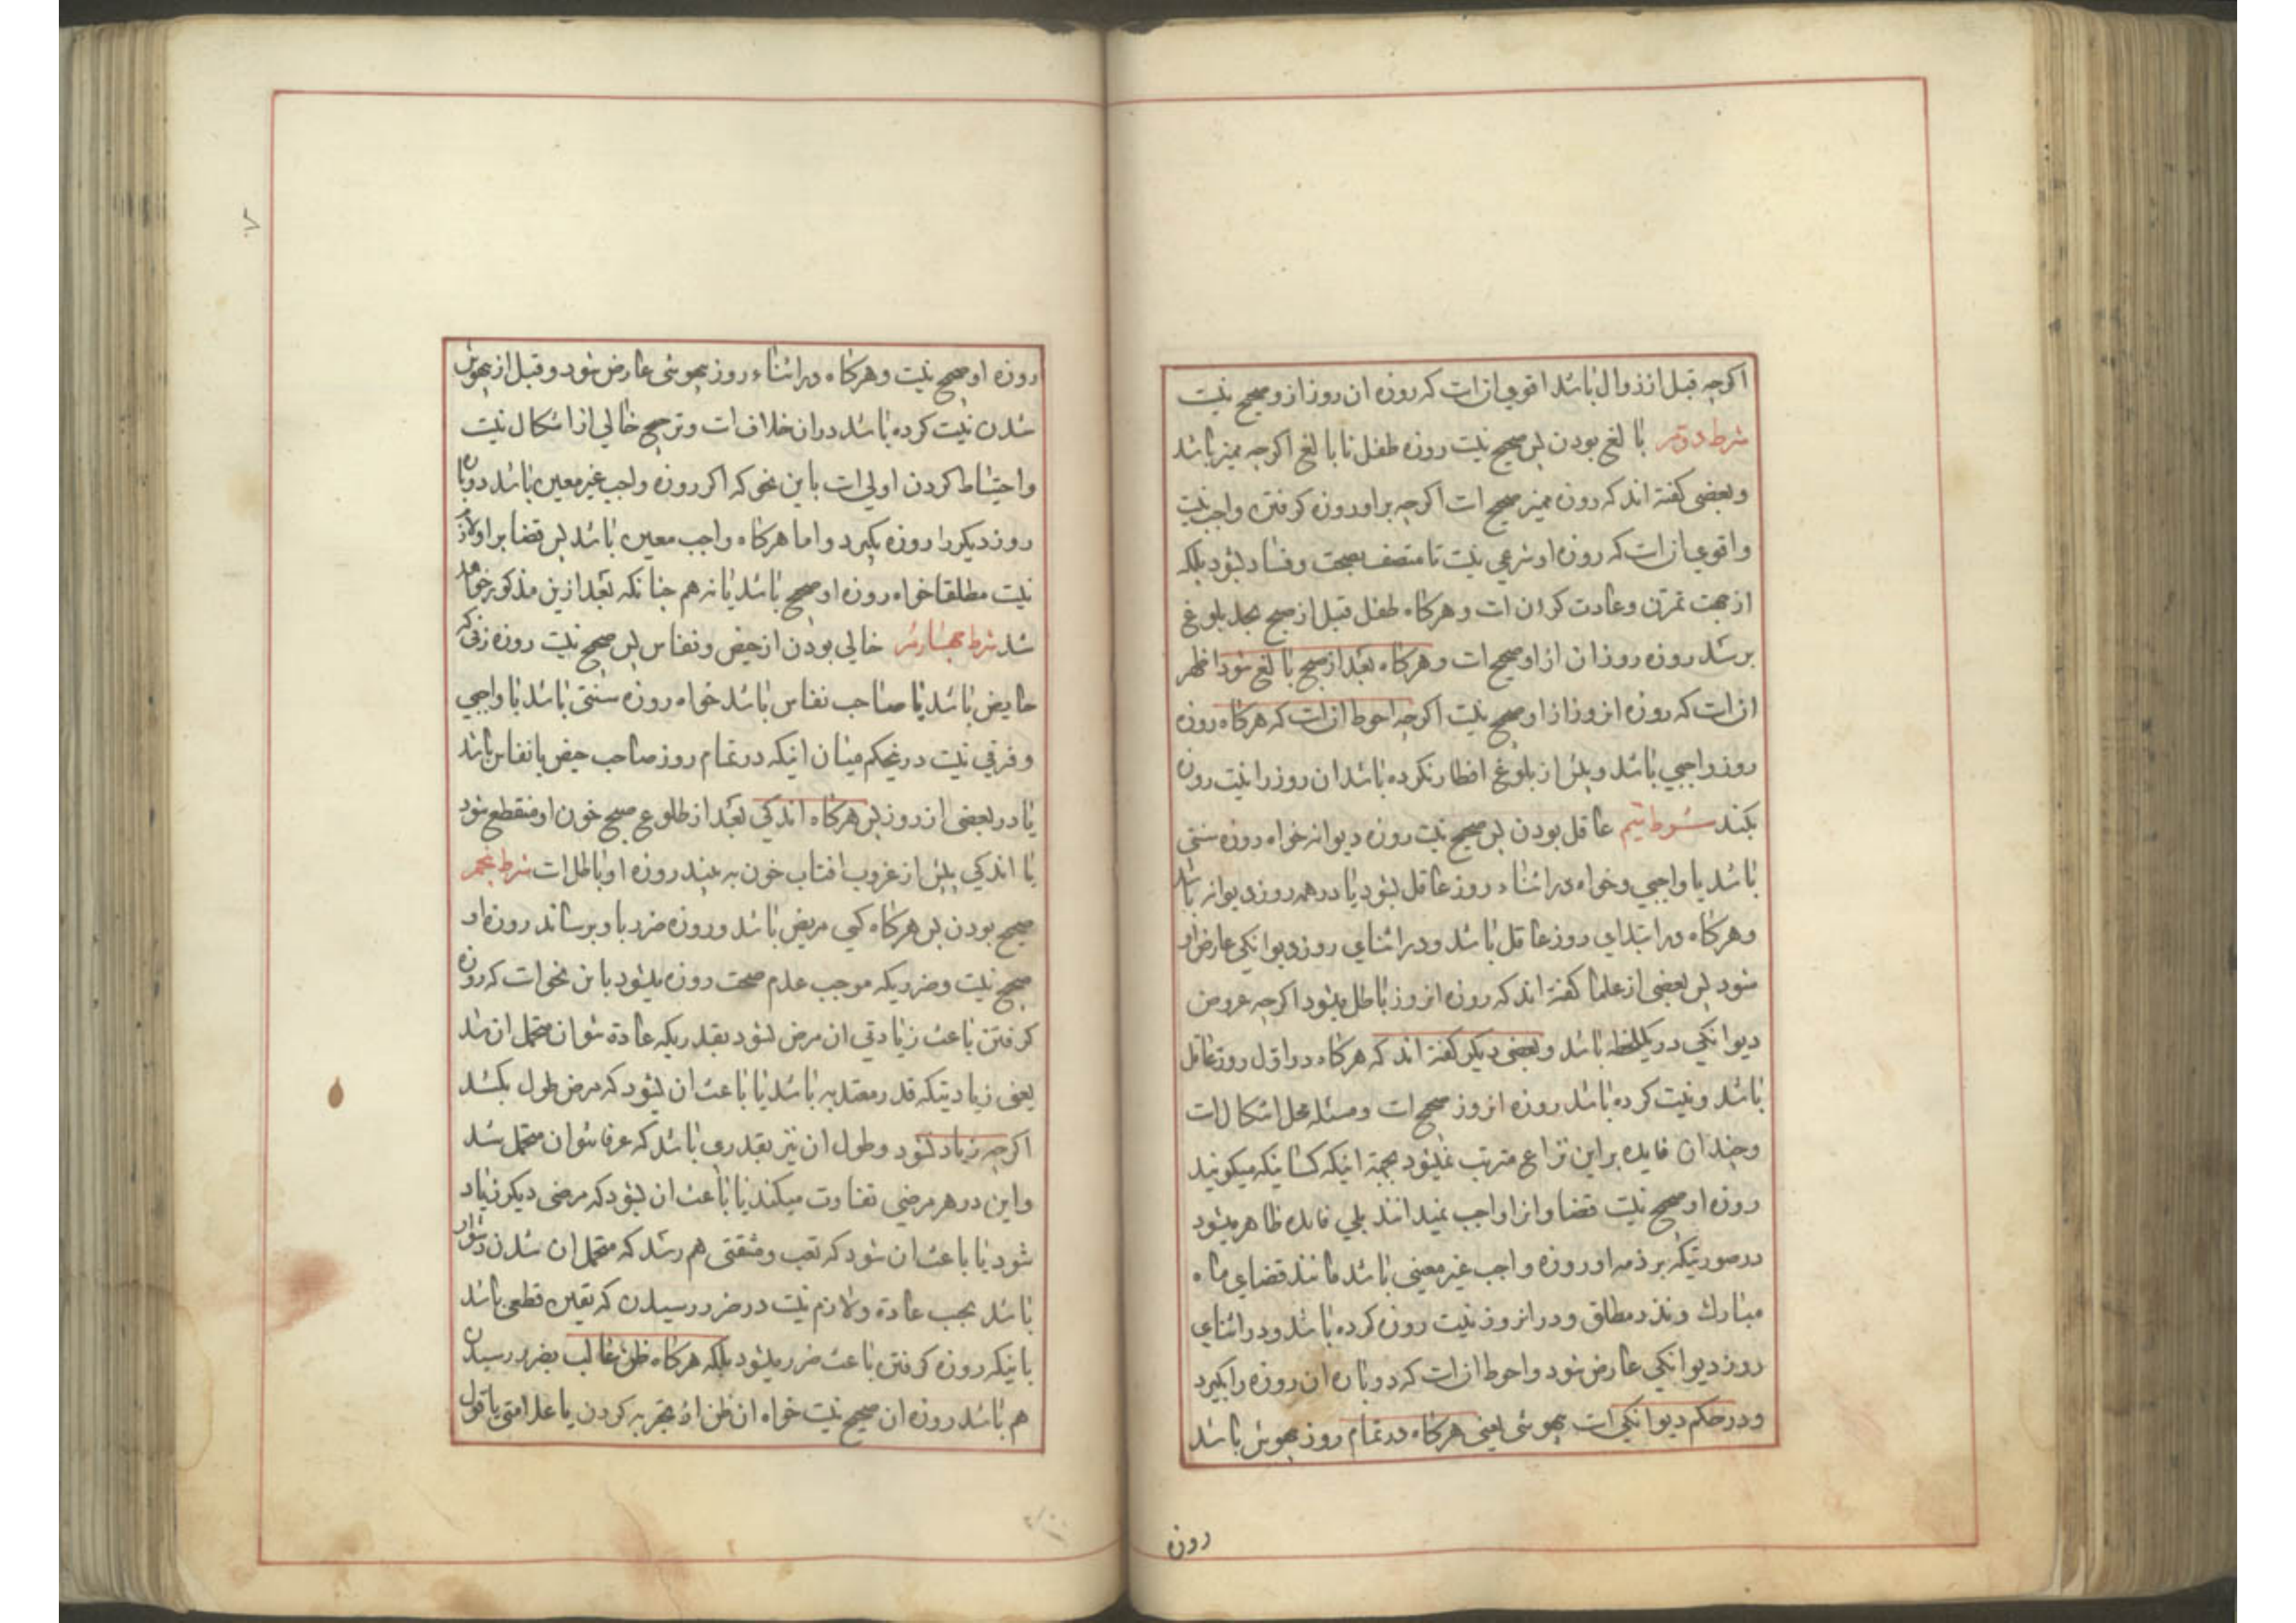 اکرچه قبل از زوال باشد اقوی ان است که روزه ان روز از و صحیح نیست
شرط دوّم بالغ بودن پس صحیح نیست روزه طفل نابالغ اکرچه ممیز باشد
و بعضی کفته اند که روزه ممیز صحیح است اکرچه بر او روزه کرفتن واجب نیست
و اقوی ان است که روزه او شرعی نیست تا متصف بصحت و فساد بشود بلکه
از جهت تمرّن و عادت کردن است و هرکاه طفل قبل از صبح بحد بلوغ
برسد روزه روز ان از او صحیح است و هرکاه بعد از صبح بالغ شود اظهر
ان است که روزه انروز از او صحیح نیست اکرچه احوط ان است که هرکاه روزه
روز واجبی باشد و پیش از بلوغ افطار نکرده باشد ان روز را نیت روزه
بکند شرط سیّم عاقل بودن پس صحیح نیست روزه دیوانه خواه روزه سنتی
باشد یا واجبی و خواه در اثناء روز عاقل بشود یا در همه روز دیوانه باشد
و هرکاه در ابتدای روز عاقل باشد و در اثنای روز دیوانکی عارض او
شود پس بعضی از علما کفته اند که روزه انروز باطل میشود اکرچه عروض
دیوانکی در یکلحظه باشد و بعضی دیکر کفته اند که هرکاه در اوّل روز عاقل
باشد و نیت کرده باشد روزه انروز صحیح است و مسئله محل اشکال است
و چندان فایده بر این نزاع مترتب نمیشود بجهة اینکه کسانیکه میکویند
روزه او صحیح نیست قضا و انرا واجب نمیدانند بلی فایده ظاهر میشود
در صورتیکه بر ذمه او روزه واجب غیر معینی باشد مانند قضای ماه
مبارك و نذر مطلق و در انروز نیت روزه کرده باشد و در اثنای
روز دیوانکی عارض شود و احوط ان است که دوباره ان روزه را بکیرد
و در حکم دیوانکی است بیهوشی یعنی هرکاه در تمام روز بیهوش باشد
روزه
روزه او صحیح نیست و هرکاه در اثناء روز بیهوشی عارض شود و قبل از بیهوش
شدن نیت کرده باشد در ان خلاف است و ترجیح خالی از اشکال نیست
و احتیاط کردن اولی است باین نحو که اکر روزه واجب غیر معین باشد دوباره
روز دیکر را روزه بکیرد و اما هرکاه واجب معین باشد پس قضا بر او لازم
نیست مطلقا خواه روزه او صحیح باشد یا نه هم چنانکه بعد ازین مذکور خواهد
شد شرط چهارم خالی بودن از حیض و نفاس پس صحیح نیست روزه زنی که
حایض باشد یا صاحب نفاس باشد خواه روزه سنتی باشد یا واجبی
و فرقی نیست در نحکم میان اینکه در تمام روز صاحب حیض یا نفاس باشد
یا در بعضی از روز پس هرکاه اندکی بعد از طلوع صبح خون او منقطع شود
یا اندکی پیش از غروب افتاب خون به بیند روزه او باطل است شرط پنجم
صحیح بودن پس هرکاه کسی مریض باشد و روزه ضرر باو برساند روزه او
صحیح نیست و ضرریکه موجب عدم صحت روزه میشود باین نحو است که روزه
کرفتن باعث زیادتی ان مرض بشود بقدریکه عادة نتوان متحمل ان شد
یعنی زیادتیکه قدر معتدبه باشد یا باعث ان بشود که مرض طول بکشد
اکرچه زیاد نشود و طول ان نیز بقدری باشد که عرفا نتوان متحمل شد
و این در هر مرضی تفاوت میکند یا باعث ان بشود که مرضی دیکر زیاد
شود یا باعث ان شود که تعب و مشقتی هم رسد که متحمل ان شدن دشوار
باشد بحسب عادة و لازم نیست در ضرر رسیدن که یقین قطعی باشد
باینکه روزه کرفتن باعث ضرر میشود بلکه هرکاه ظن غالب بضرر رسیدن
هم باشد روزه ان صحیح نیست خواه ان ظن از تجربه کردن یا علامتی یا قول